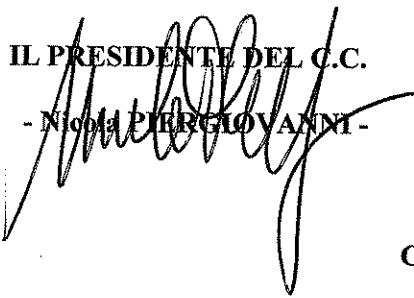 IL PRESIDENTE DEL C.C.
- Nicola PIERGIOVANNI -
C